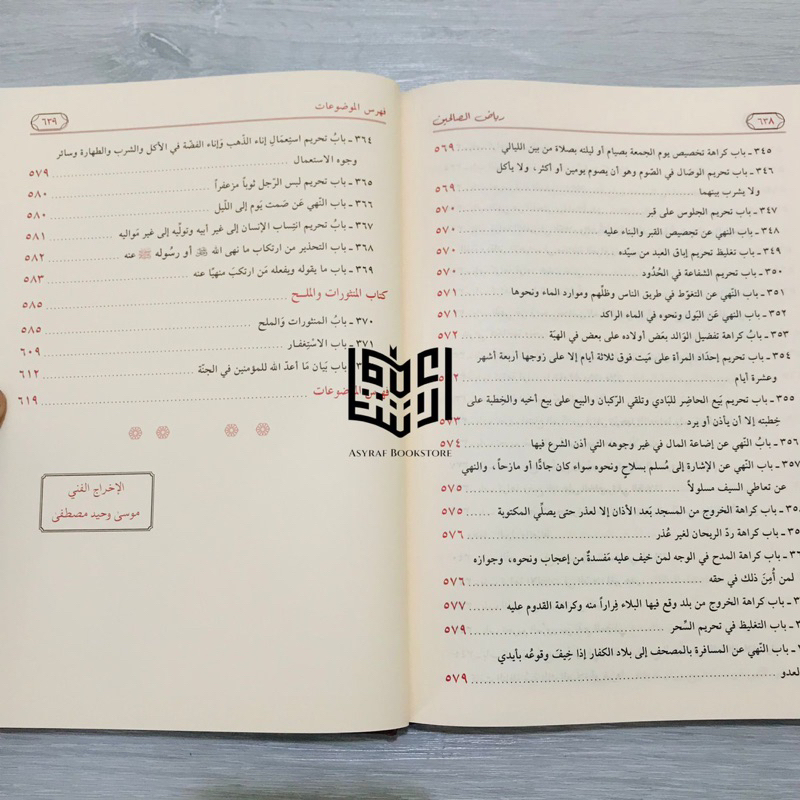 ٦٣٨
رياض الصالحين
٣٤٥ ـ باب كراهة تخصيص يوم الجمعة بصيام أو ليلته بصلاة من بين الليالي ٥٦٩
٣٤٦ ـ باب تحريم الوصال في الصّوم وهو أن يصوم يومين أو أكثر، ولا يأكل
ولا يشرب بينهما ٥٦٩
٣٤٧ ـ باب تحريم الجلوس على قبر ٥٧٠
٣٤٨ ـ باب النهي عن تجصيص القبر والبناء عليه ٥٧٠
٣٤٩ ـ باب تغليظ تحريم إباق العبد من سيّده ٥٧٠
٣٥٠ ـ باب تحريم الشفاعة في الحُدُود ٥٧٠
٣٥١ ـ باب النّهي عن التغوّط في طريق الناس وظلّهم وموارد الماء ونحوها ٥٧١
٣٥٢ ـ باب النّهي عَن البَول ونحوه في الماء الراكد ٥٧١
٣٥٣ ـ بابُ كراهة تفضيل الوَالد بعَض أولاده على بعض في الهبَة ٥٧٢
٣٥٤ ـ باب تحريم إحدَاد المرأة على مَيت فوق ثلاثة أيام إلا على زوجها أربعة أشهر
وعشرة أيام
٣٥٥ ـ باب تحريم بَيع الحاضِر للبَادي وتلقي الرّكبان والبيع على بيع أخيه والخِطبة على
خِطبته إلا أن يأذن أو يرد ٥٧٣
٣٥٦ ـ بابُ النّهي عن إضاعة المال في غير وجوهه التي أذن الشرع فيها ٥٧٤
٣٥٧ ـ باب النّهي عن الإشارة إلى مُسلم بسلاحٍ ونحوه سواء كان جادًّا أو مازحاً، والنهي
عن تعاطي السيف مسلولاً ٥٧٥
ـ باب كراهة الخروج من المسجد بَعد الأذان إلا لعذر حتى يصلّي المكتوبة ٥٧٥
ـ باب كراهة ردّ الريحان لغير عُذر ٥٧٦
ـ باب كراهة المدح في الوجه لمن خيف عليه مَفسدةٌ من إعجاب ونحوه، وجوازه
لمن أُمِنَ ذلك في حقه ٥٧٦
ـ باب كراهة الخروج من بلد وقع فيها البلاء فِراراً منه وكراهة القدوم عليه ٥٧٧
ـ باب التغليظ في تحريم السِّحر ٥٧٩
ـ باب النّهي عن المسافرة بالمصحف إلى بلاد الكفار إذا خِيفَ وقوعُه بأيدي
لعدو ٥٧٩
فهرس الموضوعات
٦٣٩
٣٦٤ ـ بابُ تحريم استِعمَالِ إناء الذّهب وَإناء الفضّة في الأكل والشرب والطهارة وسائر
وجوه الاستعمال ٥٧٩
٣٦٥ ـ باب تحريم لبس الرّجل ثوباً مزعفراً ٥٨٠
٣٦٦ ـ باب النّهي عَن صَمت يَوم إلى اللّيل ٥٨٠
٣٦٧ ـ بابُ تحريم انتِساب الإنسان إلى غير أبيه وتولّيه إلى غير مَواليه ٥٨١
٣٦٨ ـ باب التحذير من ارتكاب ما نهى الله ﷻ أو رسُوله ﷺ عنه ٥٨٢
٣٦٩ ـ باب ما يقوله ويفعله مَن ارتكبَ منهيًا عنه ٥٨٣
كتاب المنثورات والملـح ٥٨٥
٣٧٠ ـ بابُ المنثورات وَالملح ٥٨٥
٣٧١ ـ باب الاسْتِغفـار ٦٠٩
باب بَيان مَا أعدّ الله للمؤمنين في الجنّة ٦١٢
فهرس الموضوعات ٦١٩
الإخراج الفني
موسى وحيد مصطفى
ASYRAF BOOKSTORE